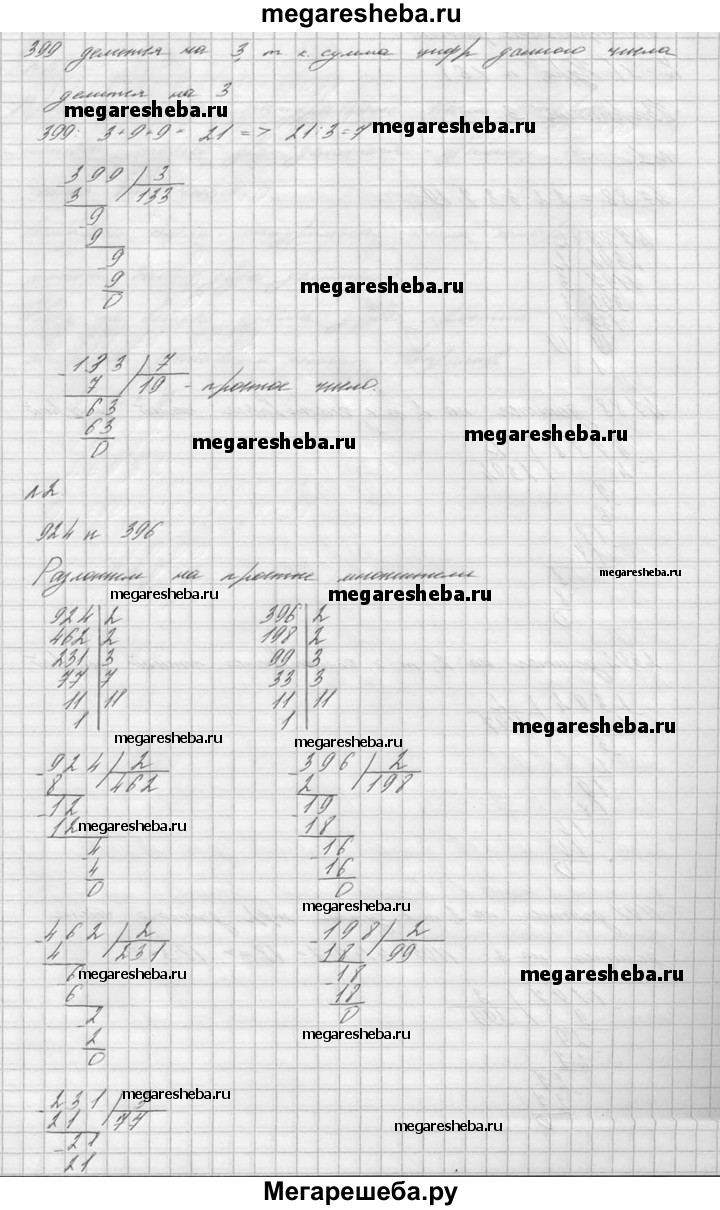 megaresheba.ru
399 делится на 3, т. к. сумма цифр данного числа
делится на 3
megaresheba.ru
399: 3+9+9= 21 => 21:3=7
megaresheba.ru
399 3
3 133
9
9
9
9
0
megaresheba.ru
133 7
7 19 - простое число.
63
63
0
megaresheba.ru
megaresheba.ru
№2.
924 и 396
Разложим на простые множители
megaresheba.ru
megaresheba.ru
megaresheba.ru
924 2
462 2
231 3
77 7
11 11
1
396 2
198 2
99 3
33 3
11 11
1
megaresheba.ru
megaresheba.ru
megaresheba.ru
924 2
8 462
12
12
4
4
0
megaresheba.ru
396 2
2 198
19
18
16
16
0
megaresheba.ru
megaresheba.ru
462 2
4 231
6
6
2
2
0
megaresheba.ru
198 2
18 99
18
18
0
megaresheba.ru
megaresheba.ru
231 3
21 77
21
21
megaresheba.ru
megaresheba.ru
Мегарешеба.ру